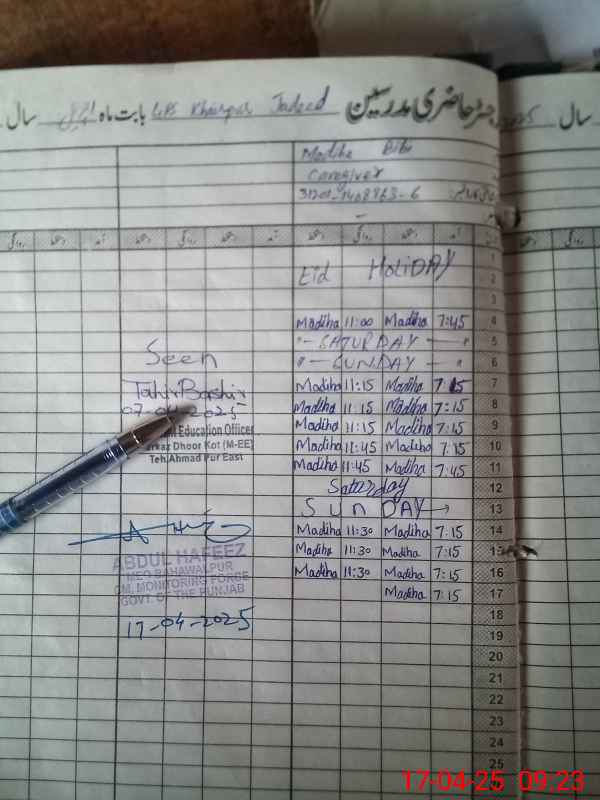 رجسٹر حاضری مدرسین GPS Khairpur Jadeed بابت ماہ اپریل سال
سال
Madiha Bibi
Caregiver
1
Eid Holiday 2
3
Madiha 11:00 Madiha 7:45 4
" SATURDAY " 5
" SUNDAY " 6
Seen
Madiha 11:15 Madiha 7:15 7
Tahir Bashir
Madiha 11:15 Madiha 7:15 8
07-04-2025
Madiha 11:15 Madiha 7:15 9
Education Officer
Madiha 11:45 Madiha 7:15 10
Markaz Dhoor Kot (M-EE)
Madiha 11:45 Madiha 7:45 11
Teh. Ahmad Pur East
Saturday 12
SUNDAY 13
Madiha 11:30 Madiha 7:15 14
Madiha 11:30 Madiha 7:15 15
ABDUL HAFEEZ
Madiha 11:30 Madiha 7:15 16
MEO BAHAWALPUR
CM, MONITORING FORCE
Madiha 7:15 17
GOVT. OF THE PUNJAB
18
17-04-2025
19
20
21
22
23
24
25
17-04-25 09:23